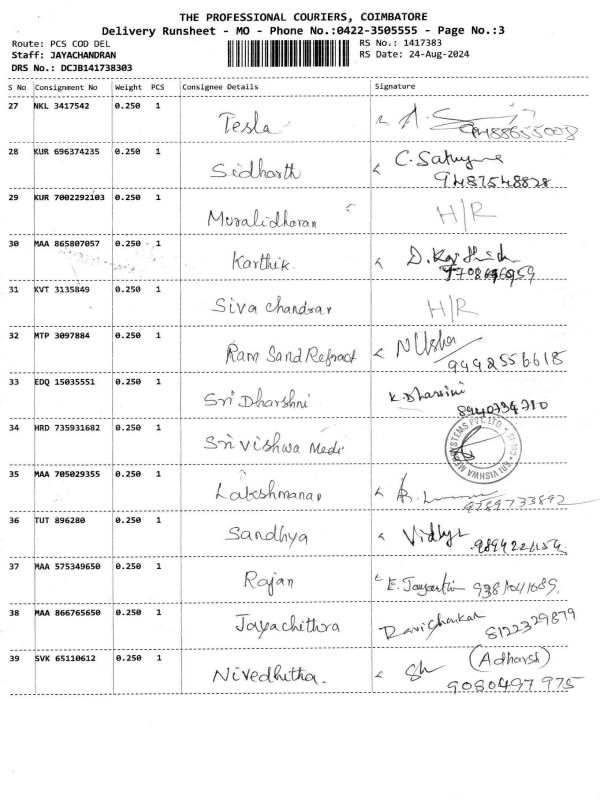 THE PROFESSIONAL COURIERS, COIMBATORE
Delivery Runsheet - MO - Phone No.:0422-3505555 - Page No.:3
Route: PCS COD DEL RS No.: 1417383
Staff: JAYACHANDRAN RS Date: 24-Aug-2024
DRS No.: DCJB141738303
S No Consignment No Weight PCS Consignee Details Signature
27 NKL 3417542 0.250 1 Tesla
9488655008
28 KUR 696374235 0.250 1 Sidharth
9487548828
29 KUR 7002292103 0.250 1 Muralidharan H/R
30 MAA 865807057 0.250 1 Karthik D. Karthick
31 KVT 3135849 0.250 1 Siva chandran H/R
32 MTP 3097884 0.250 1 Ram Sand Refract N Usha
9442556618
33 EDQ 15035551 0.250 1 Sri Dharshni K. Dharsini
8940734710
34 HRD 735931682 0.250 1 Sri Vishwa Medi
SRI VISHWA MEDISYSTEMS PVT. LTD.
35 MAA 705029355 0.250 1 Lakshmanan
9789733892
36 TUT 896280 0.250 1 Sandhya Vidhya
37 MAA 575349650 0.250 1 Rajan E. Jayanthi
38 MAA 866765650 0.250 1 Jayachithra Ravichankar
8122329879
39 SVK 65110612 0.250 1 Nivedhitha. Sh (Adharsh)
9080497975